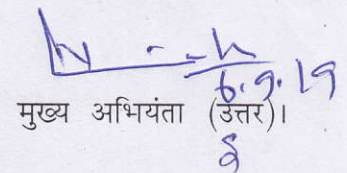 6.9.19
मुख्य अभियंता (उत्तर)।